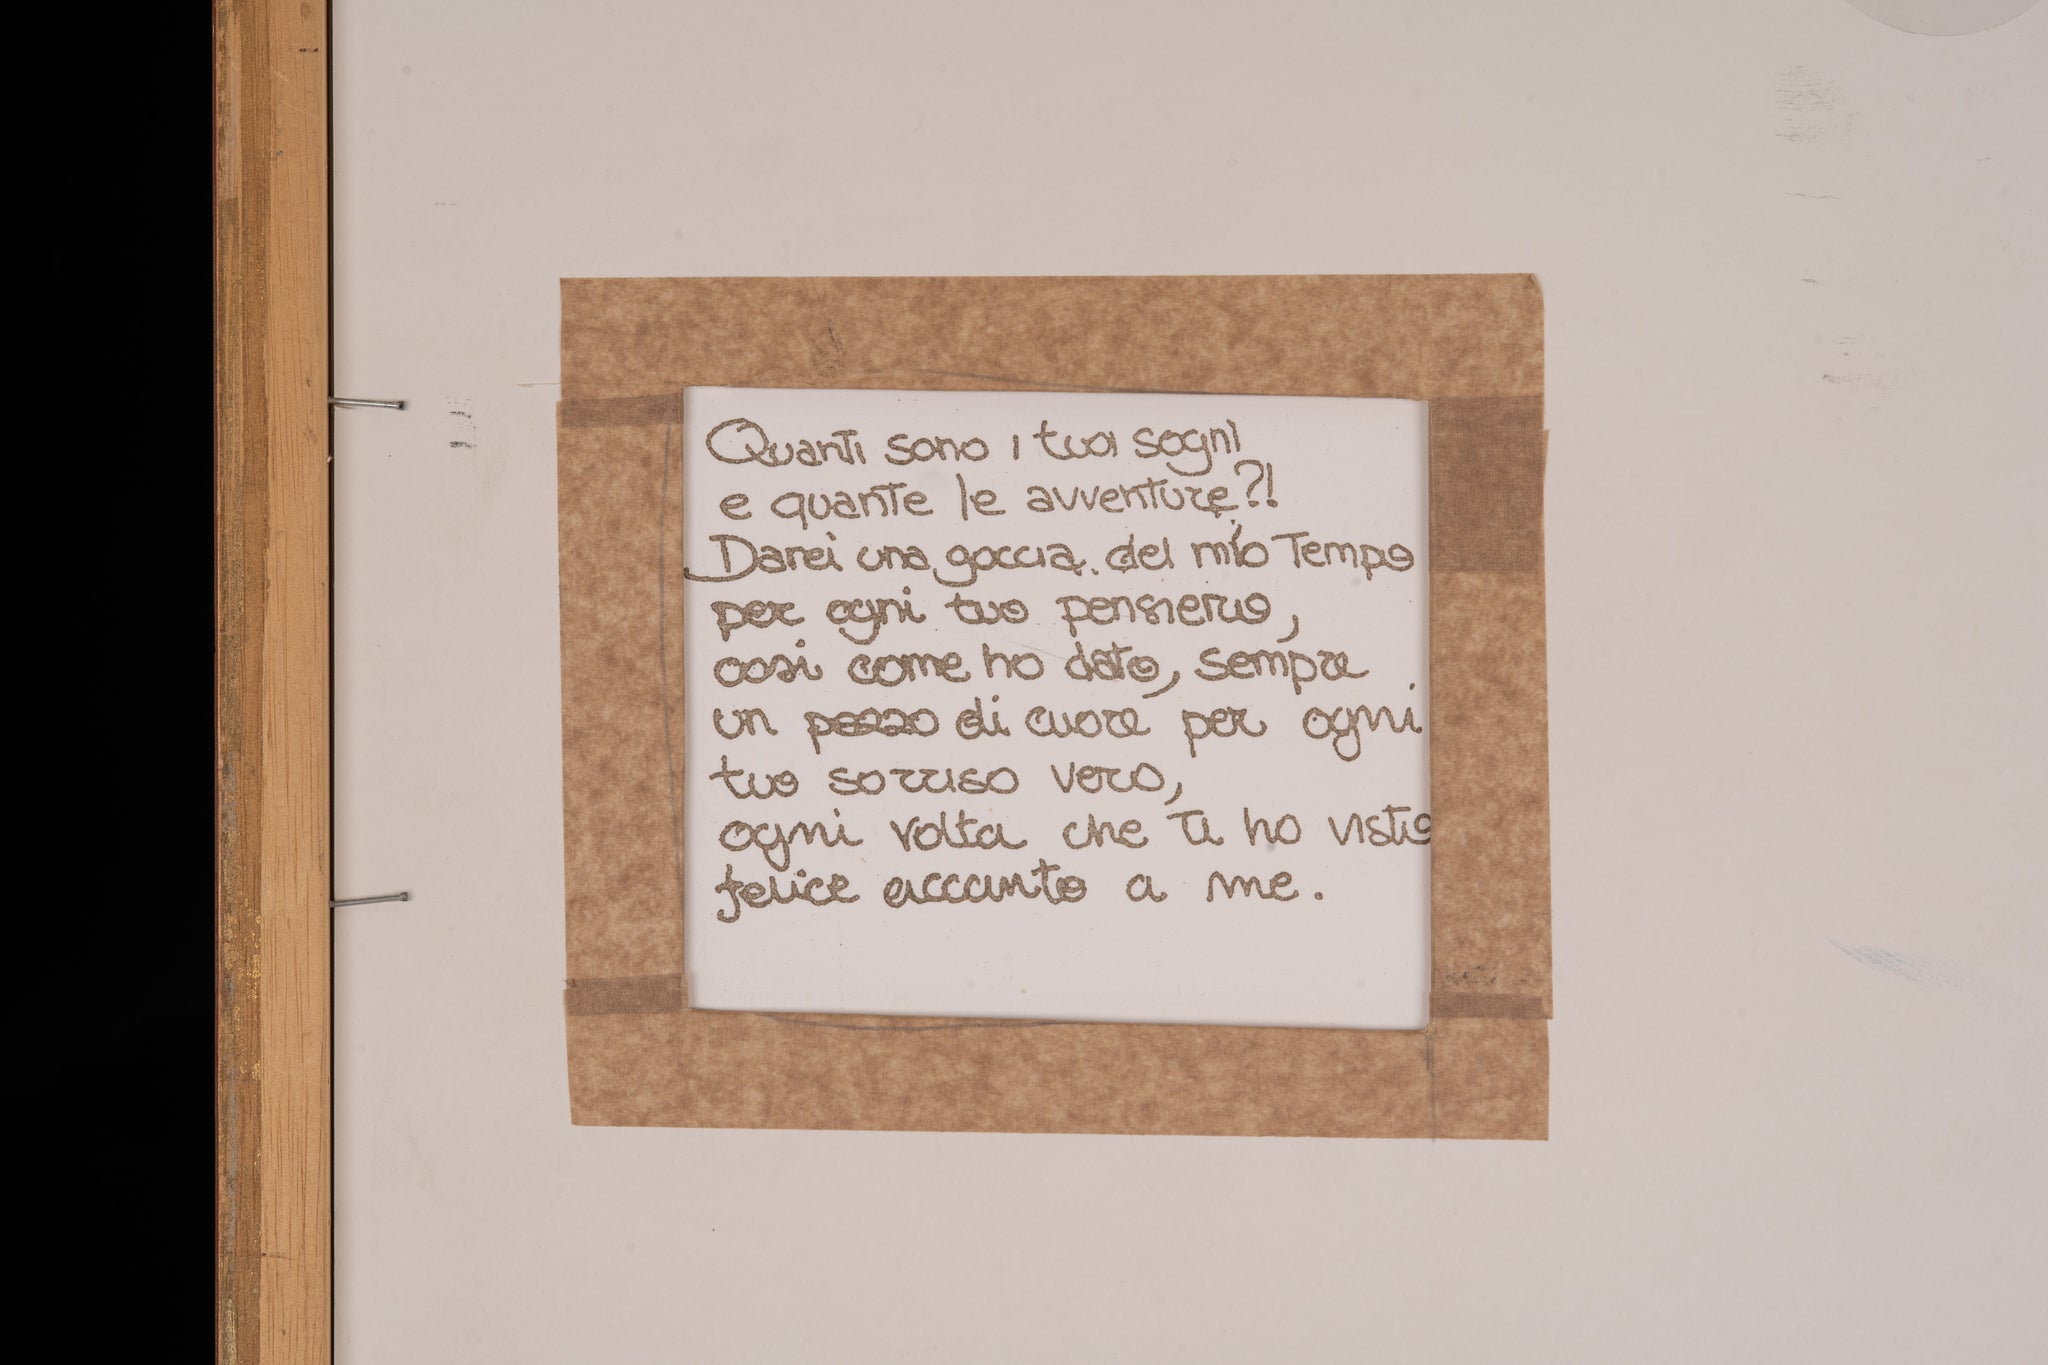 Quanti sono i tuoi sogni
e quante le avventure?!
Darei una goccia del mio Tempo
per ogni tuo pensiero,
così come ho dato, sempre
un pezzo di cuore per ogni
tuo sorriso vero,
ogni volta che ti ho visto
felice accanto a me.